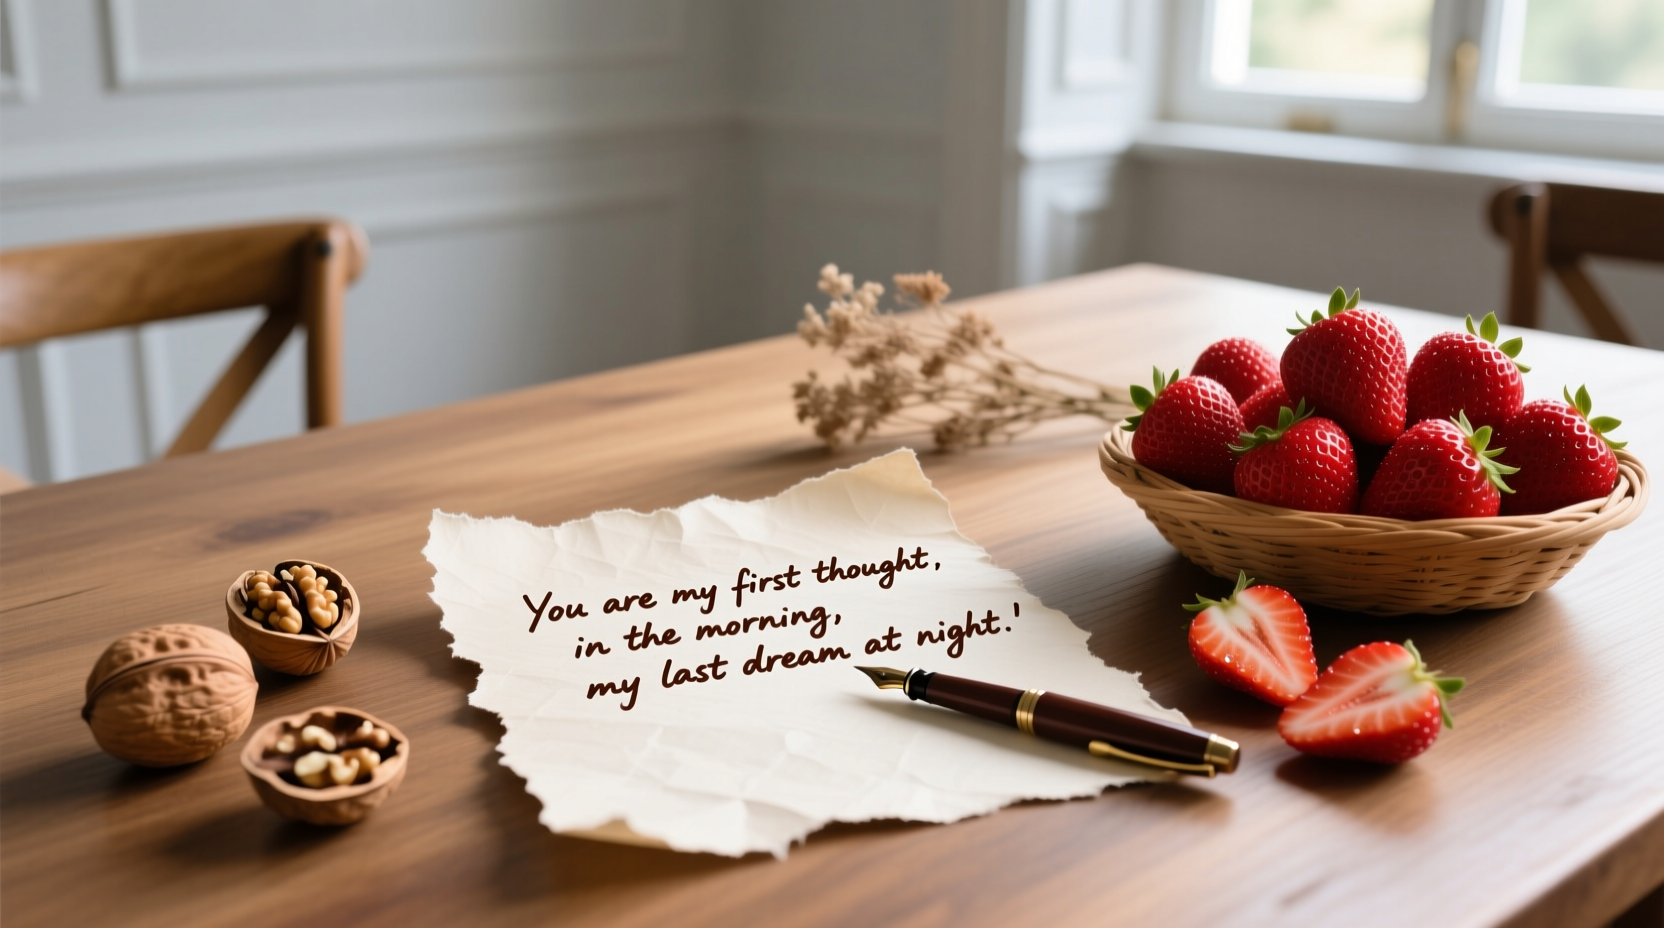 You are my first thought,
in the morning,
my last dream at night.'